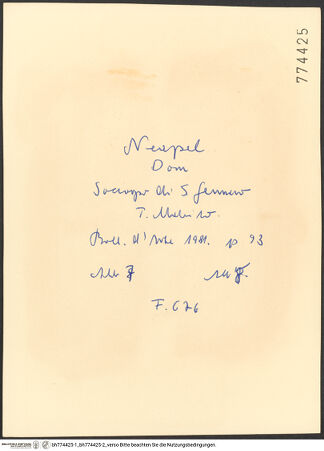 774425
Neapel
Dom
Soccorpo di S Gennaro
T. Malvito.
Boll. d'Arte 1981. p 93
F. 676
bh774425-1_bh774425-2_verso Bitte beachten Sie die Nutzungsbedingungen.